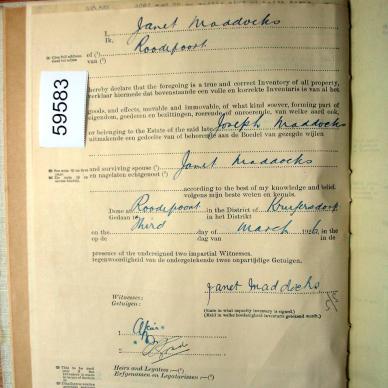 I, Janet Maddocks
Ik,
of (¹) Roodepoort
van (¹)
hereby declare that the foregoing is a true and correct Inventory of all property,
verklaar hiermede dat bovenstaande een volle en korrekte Inventaris is van al het
goods, and effects, movable and immovable, of what kind soever, forming part of
eigendom, goederen en bezittingen, roerende, onroerende, van welke aard ook,
or belonging to the Estate of the said late Joseph Maddocks
uitmakende een gedeelte van of behorende aan de Boedel van gezegde wijlen
and surviving spouse (²) Janet Maddocks
en nagelaten echtgenoot (²)
according to the best of my knowledge and belief.
volgens mijn beste weten en kennis.
Done at Roodepoort in the District of Krugersdorp
Gedaan te in het Distrikt
on the third day of March 192, in the
op de dag van in de
presence of the undersigned two impartial Witnesses.
tegenwoordigheid van de ondergetekende twee onpartijdige Getuigen.
Janet Maddocks
Witnesses:
Getuigen:
(State in what capacity inventory is signed.)
(Meld in welke hoedanigheid inventaris getekend wordt.)
1
2
Heirs and Legatees (³):—
Erfgenamen en Legatarissen (³):—
59583